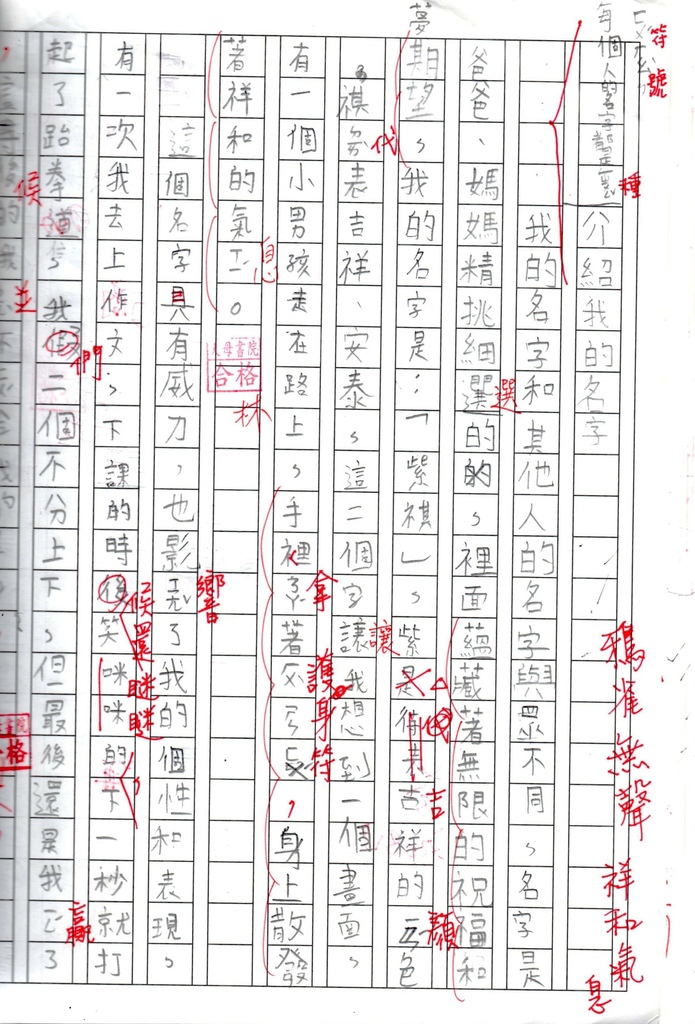 符號
每個人的名字都是
種
介紹我的名字
我的名字和其他人的名字與眾不同，名字是
爸爸、媽媽精挑細選的的，裡面蘊藏著無限的祝福和
選
夢
期望，我的名字是：「紫祺」，紫是待表吉祥的ㄧㄢ色
代
吉
顏
祺表吉祥、安泰，這二個字讓我想到一個畫面，
讓
有一個小男孩走在路上，手裡著，身上散發
拿
護身符
著祥和的氣ㄒㄧ。
息
天母書院
合格
林
這個名字具有威力，也影ㄒㄧㄤ了我的個性和表現，
響
有一次我去上作文，下課的時後笑咪咪的，下一秒就打
候還
瞇瞇
起了跆拳道，我假二個不分上下，但最後還是我ㄧㄥ了
們
贏
候
並
合格
鴉雀無聲
祥和氣息